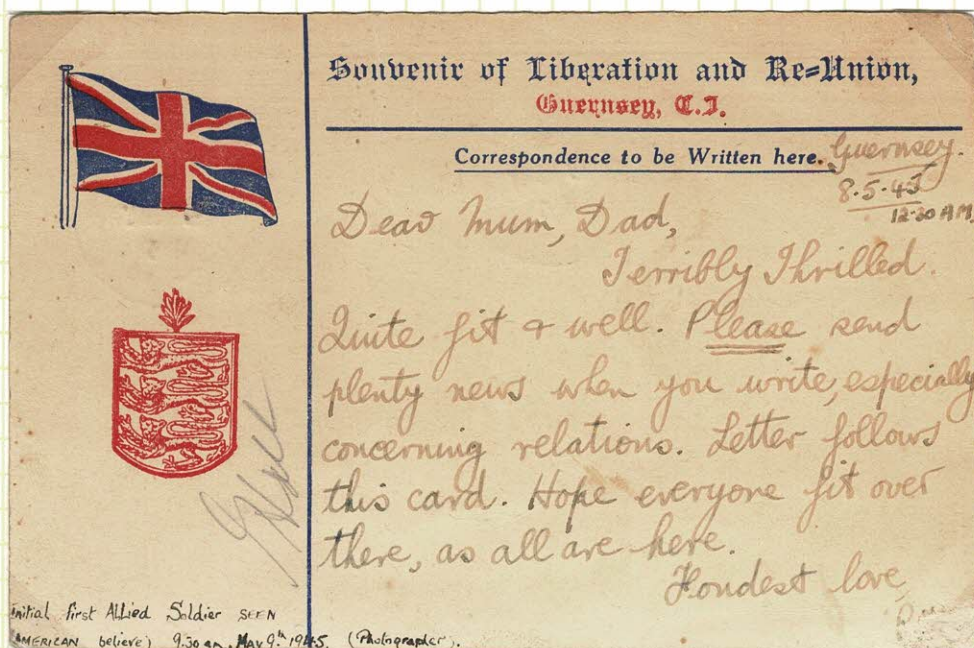 Souvenir of Liberation and Re=Union,
Guernsey, C.I.
Correspondence to be Written here.
Guernsey.
8.5.45
12-30 AM
Dear Mum, Dad,
Terribly Thrilled.
Quite fit & well. Please send
plenty news when you write, especially
concerning relations. Letter follows
this card. Hope everyone fit over
there, as all are here.
Fondest love,
initial first Allied Soldier SEEN
(AMERICAN believe) 9.30 am. May 9th 1945. (Photographer).